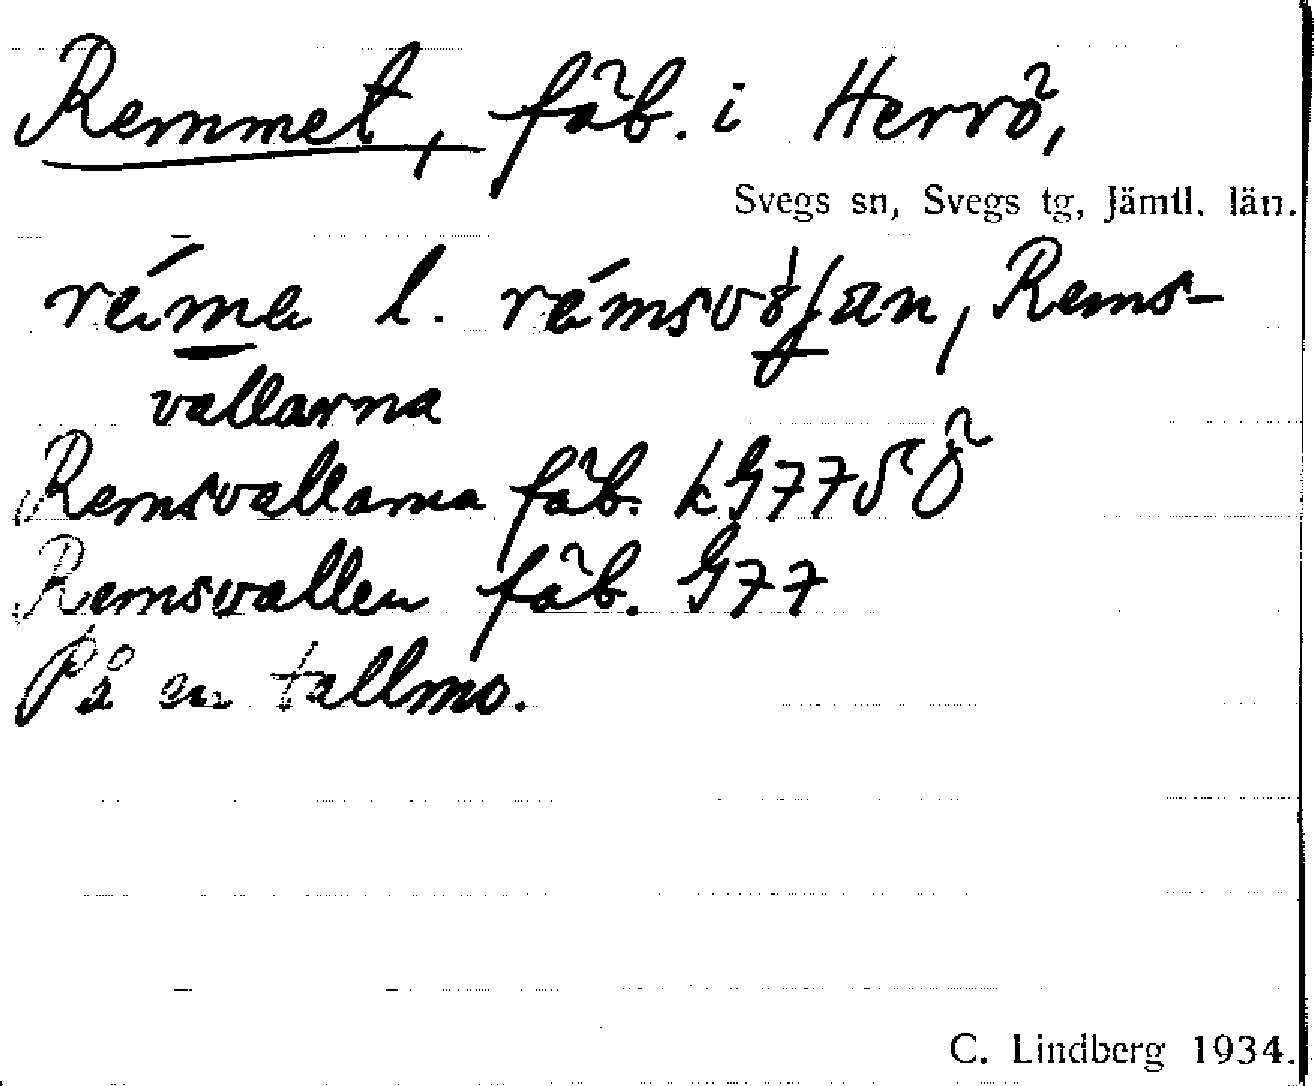 Remmet, fäb. i Herrö,
Svegs sn, Svegs tg, Jämtl. län.
l. Rems-
vallarna
Remsvallarna fäb. LG77SÖ
Remsvallen fäb. G77
På en tallmo.
C. Lindberg 1934.